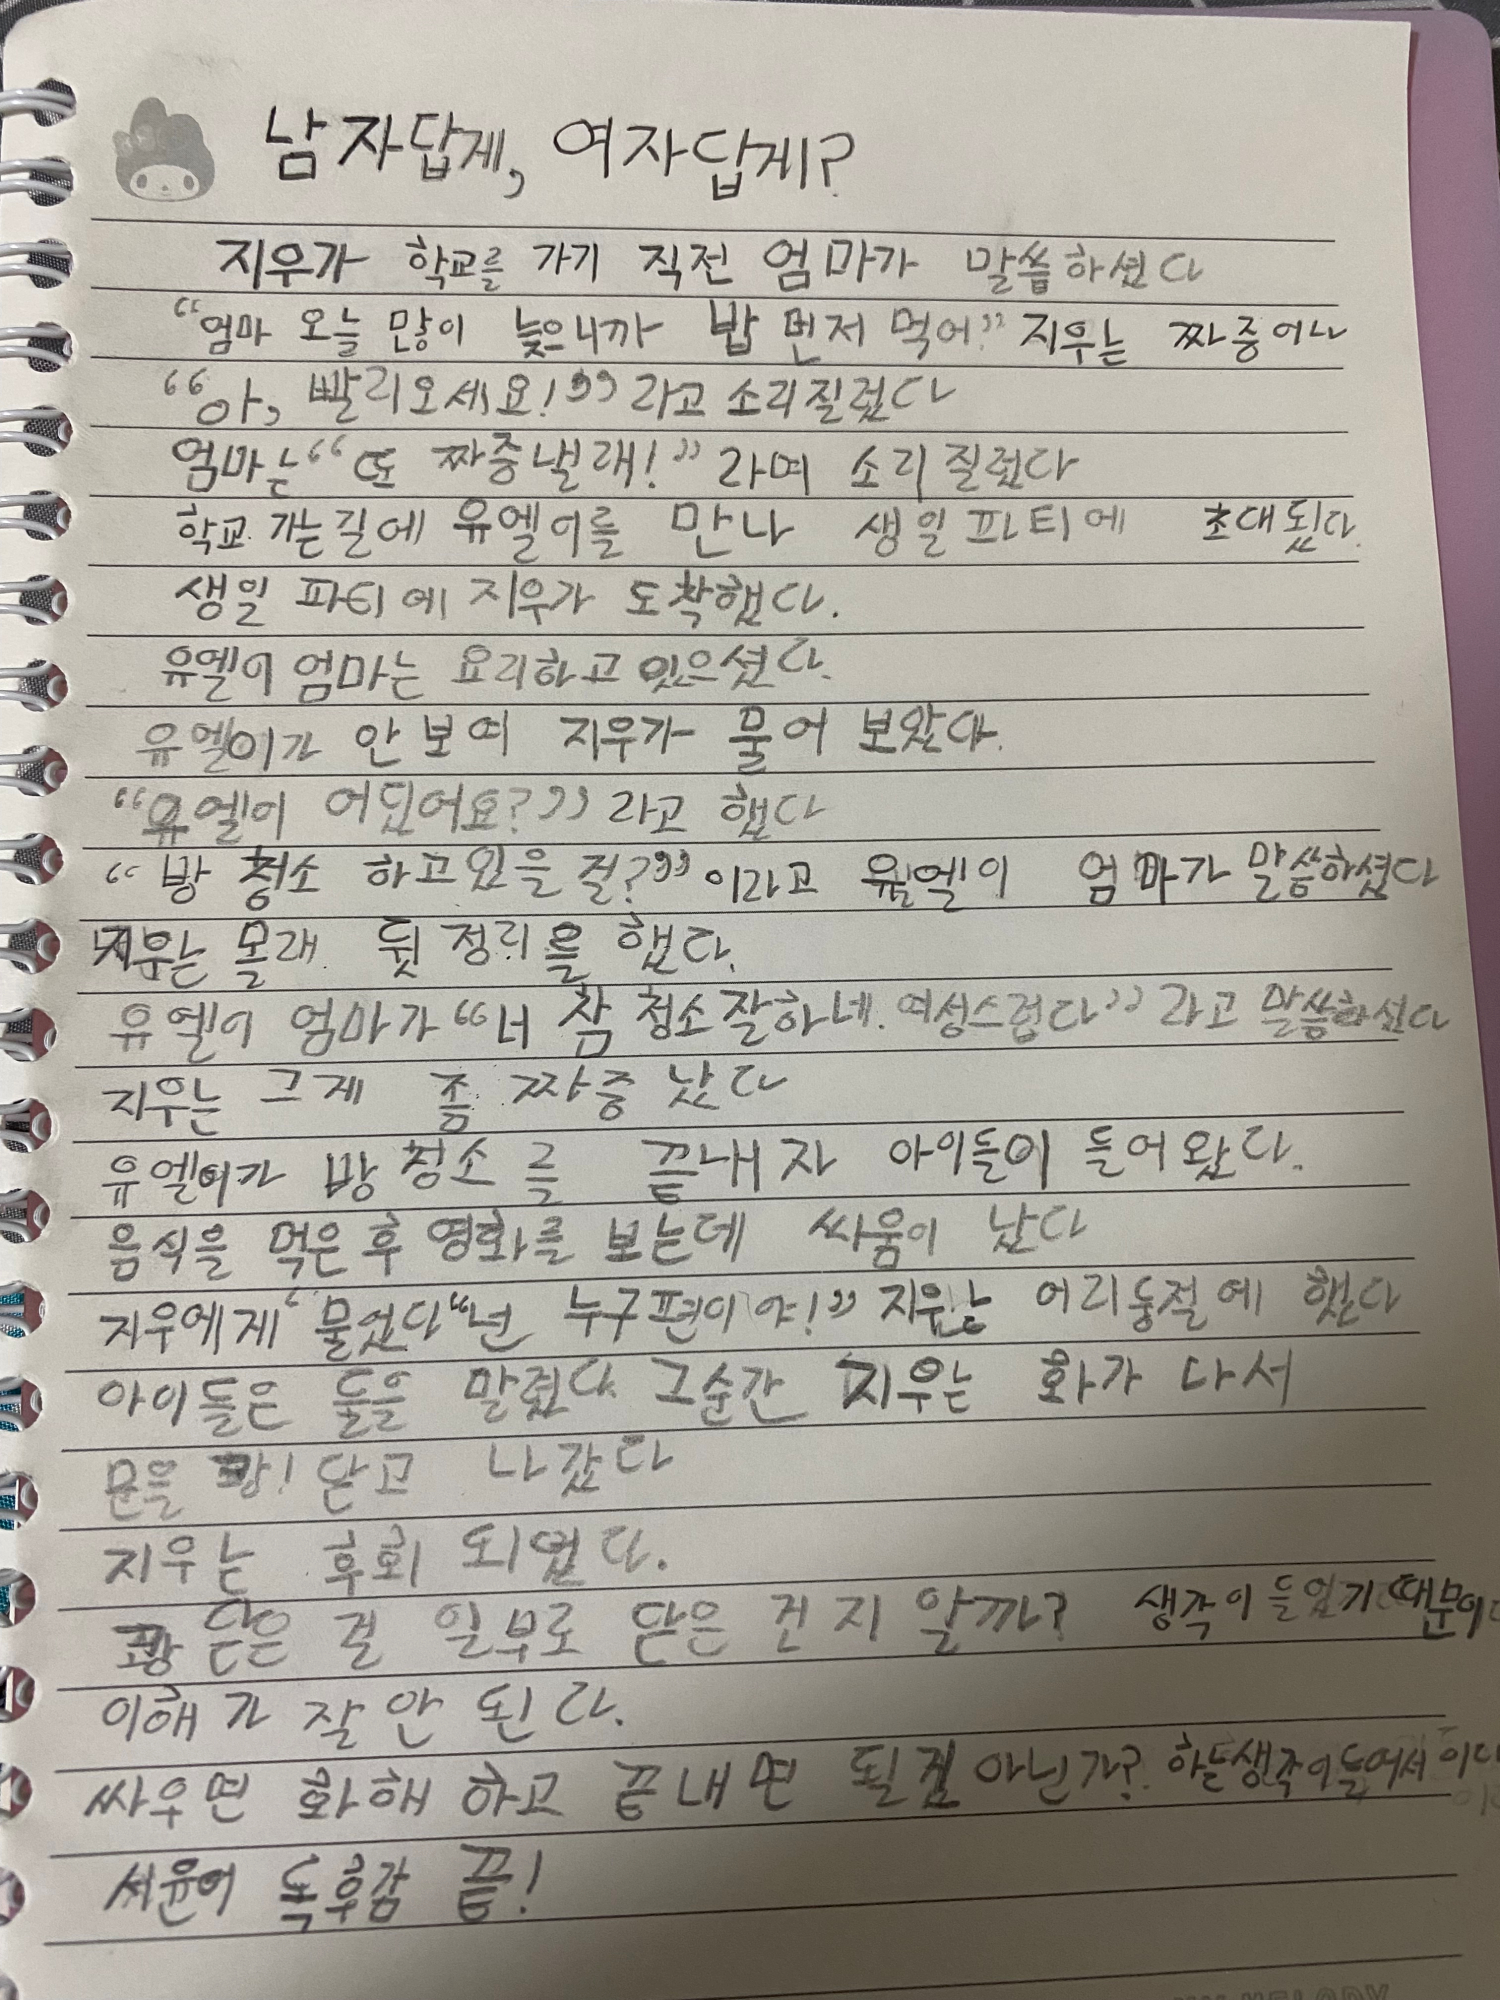 남자답게, 여자답게?
지우가 학교를 가기 직전 엄마가 말씀하셨다
"엄마 오늘 많이 늦으니까 밥 먼저 먹어" 지우는 짜중어나
"아, 빨리오세요!" 라고 소리질렀다
엄마는 "또 짜중낼래!" 라며 소리 질렀다
학교 가는길에 유엘이를 만나 생일 파티에 초대됬다.
생일 파티에 지우가 도착했다.
유엘이 엄마는 요리하고 있으셨다.
유엘이가 안 보여 지우가 물어 보았다.
"유엘이 어딨어요?" 라고 했다
"방 청소 하고있을 걸?" 이라고 유엘이 엄마가 말씀하셨다
지우는 몰래 뒷정리를 했다.
유엘이 엄마가 "너 참 청소잘하네. 여성스럽다" 라고 말씀하신다
지우는 그게 좀 짜중 났다
유엘이가 방청소를 끝내자 아이들이 들어왔다.
음식을 먹은 후 영화를 보는데 싸움이 났다
지우에게 물었다 "넌 누구편이야!" 지우는 어리둥절에 했다
아이들은 둘을 말렸다. 그순간 지우는 화가 나서
문을 쾅! 닫고 나갔다
지우는 후회 되었다.
쾅 닫은 걸 일부로 닫은 건지 알까? 생각이 들었기 때문이
이해가 잘 안 된다.
싸우면 화해 하고 끝내면 될걸 아닌가? 하는생각이들어서 이다
서윤이 독후감 끝!